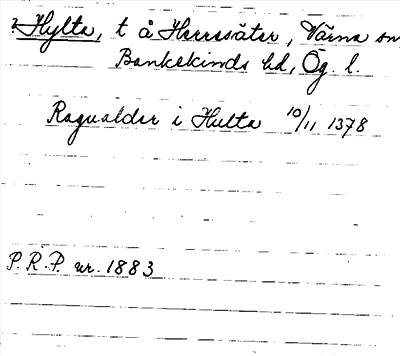 ? Hylta, t å Herrsäter, Värna sn
Bankekinds hd, Ög. l.
Ragualder i Hulta 10/11 1378
P.R.P. nr. 1883